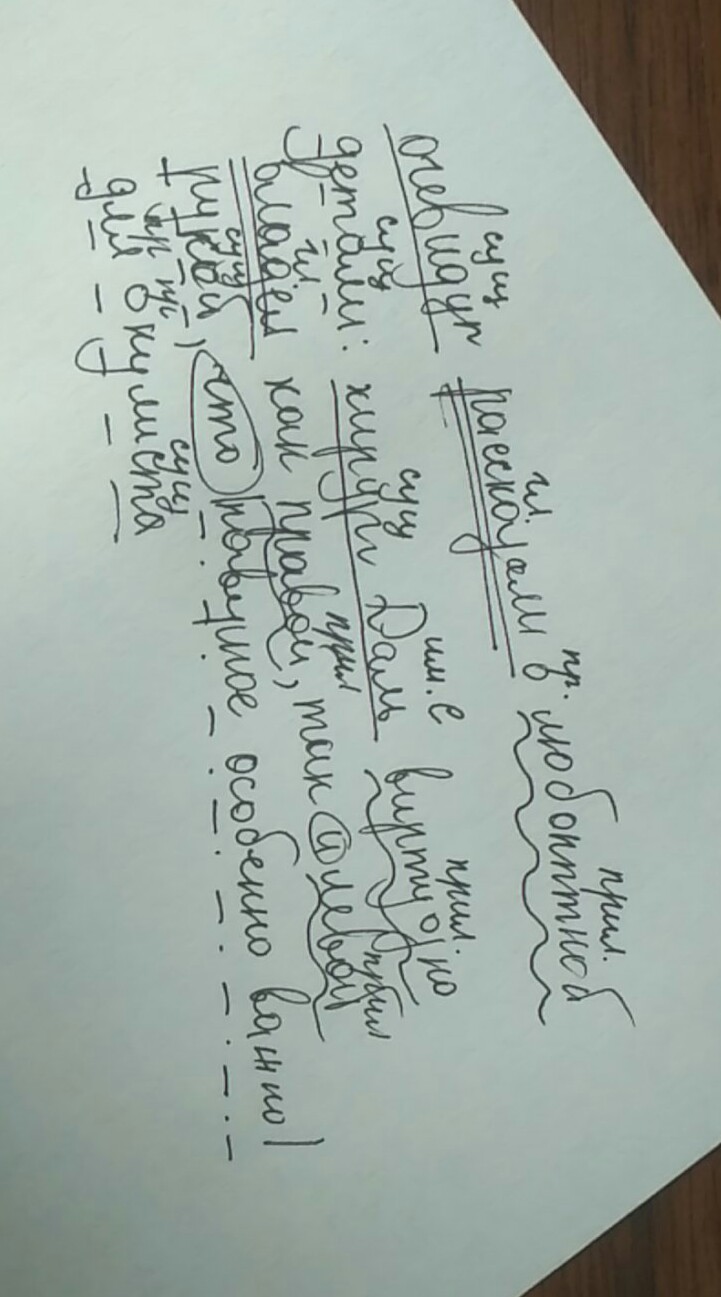 сущ гл. пр. прил.
очевидцы рассказали в любоптной
сущ сущ им. с прил.
детали: хирург Даль виртуозно
гл прил прил
владел как правой, так и левой
сущ
рукой, что особенно важно
пр сущ
для окулиста